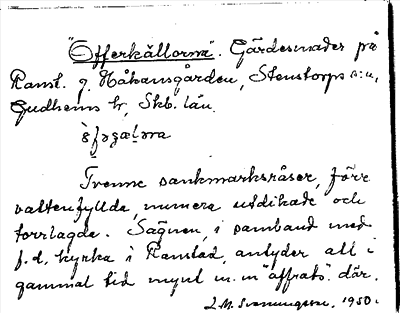 "Offerkällorna". Gärdesmader på
Ranst. g. Håkansgården, Stenstorps s:n,
Gudhems hr, Skb. län.
Tvenne sankmarksråser, förr
vattenfyllda, numera utdikade och
torrlagda. Sägnen, i samband med
f.d. kyrka i Ranstad, antyder att i
gammal tid mynt m.m "offrats" där.
1950.